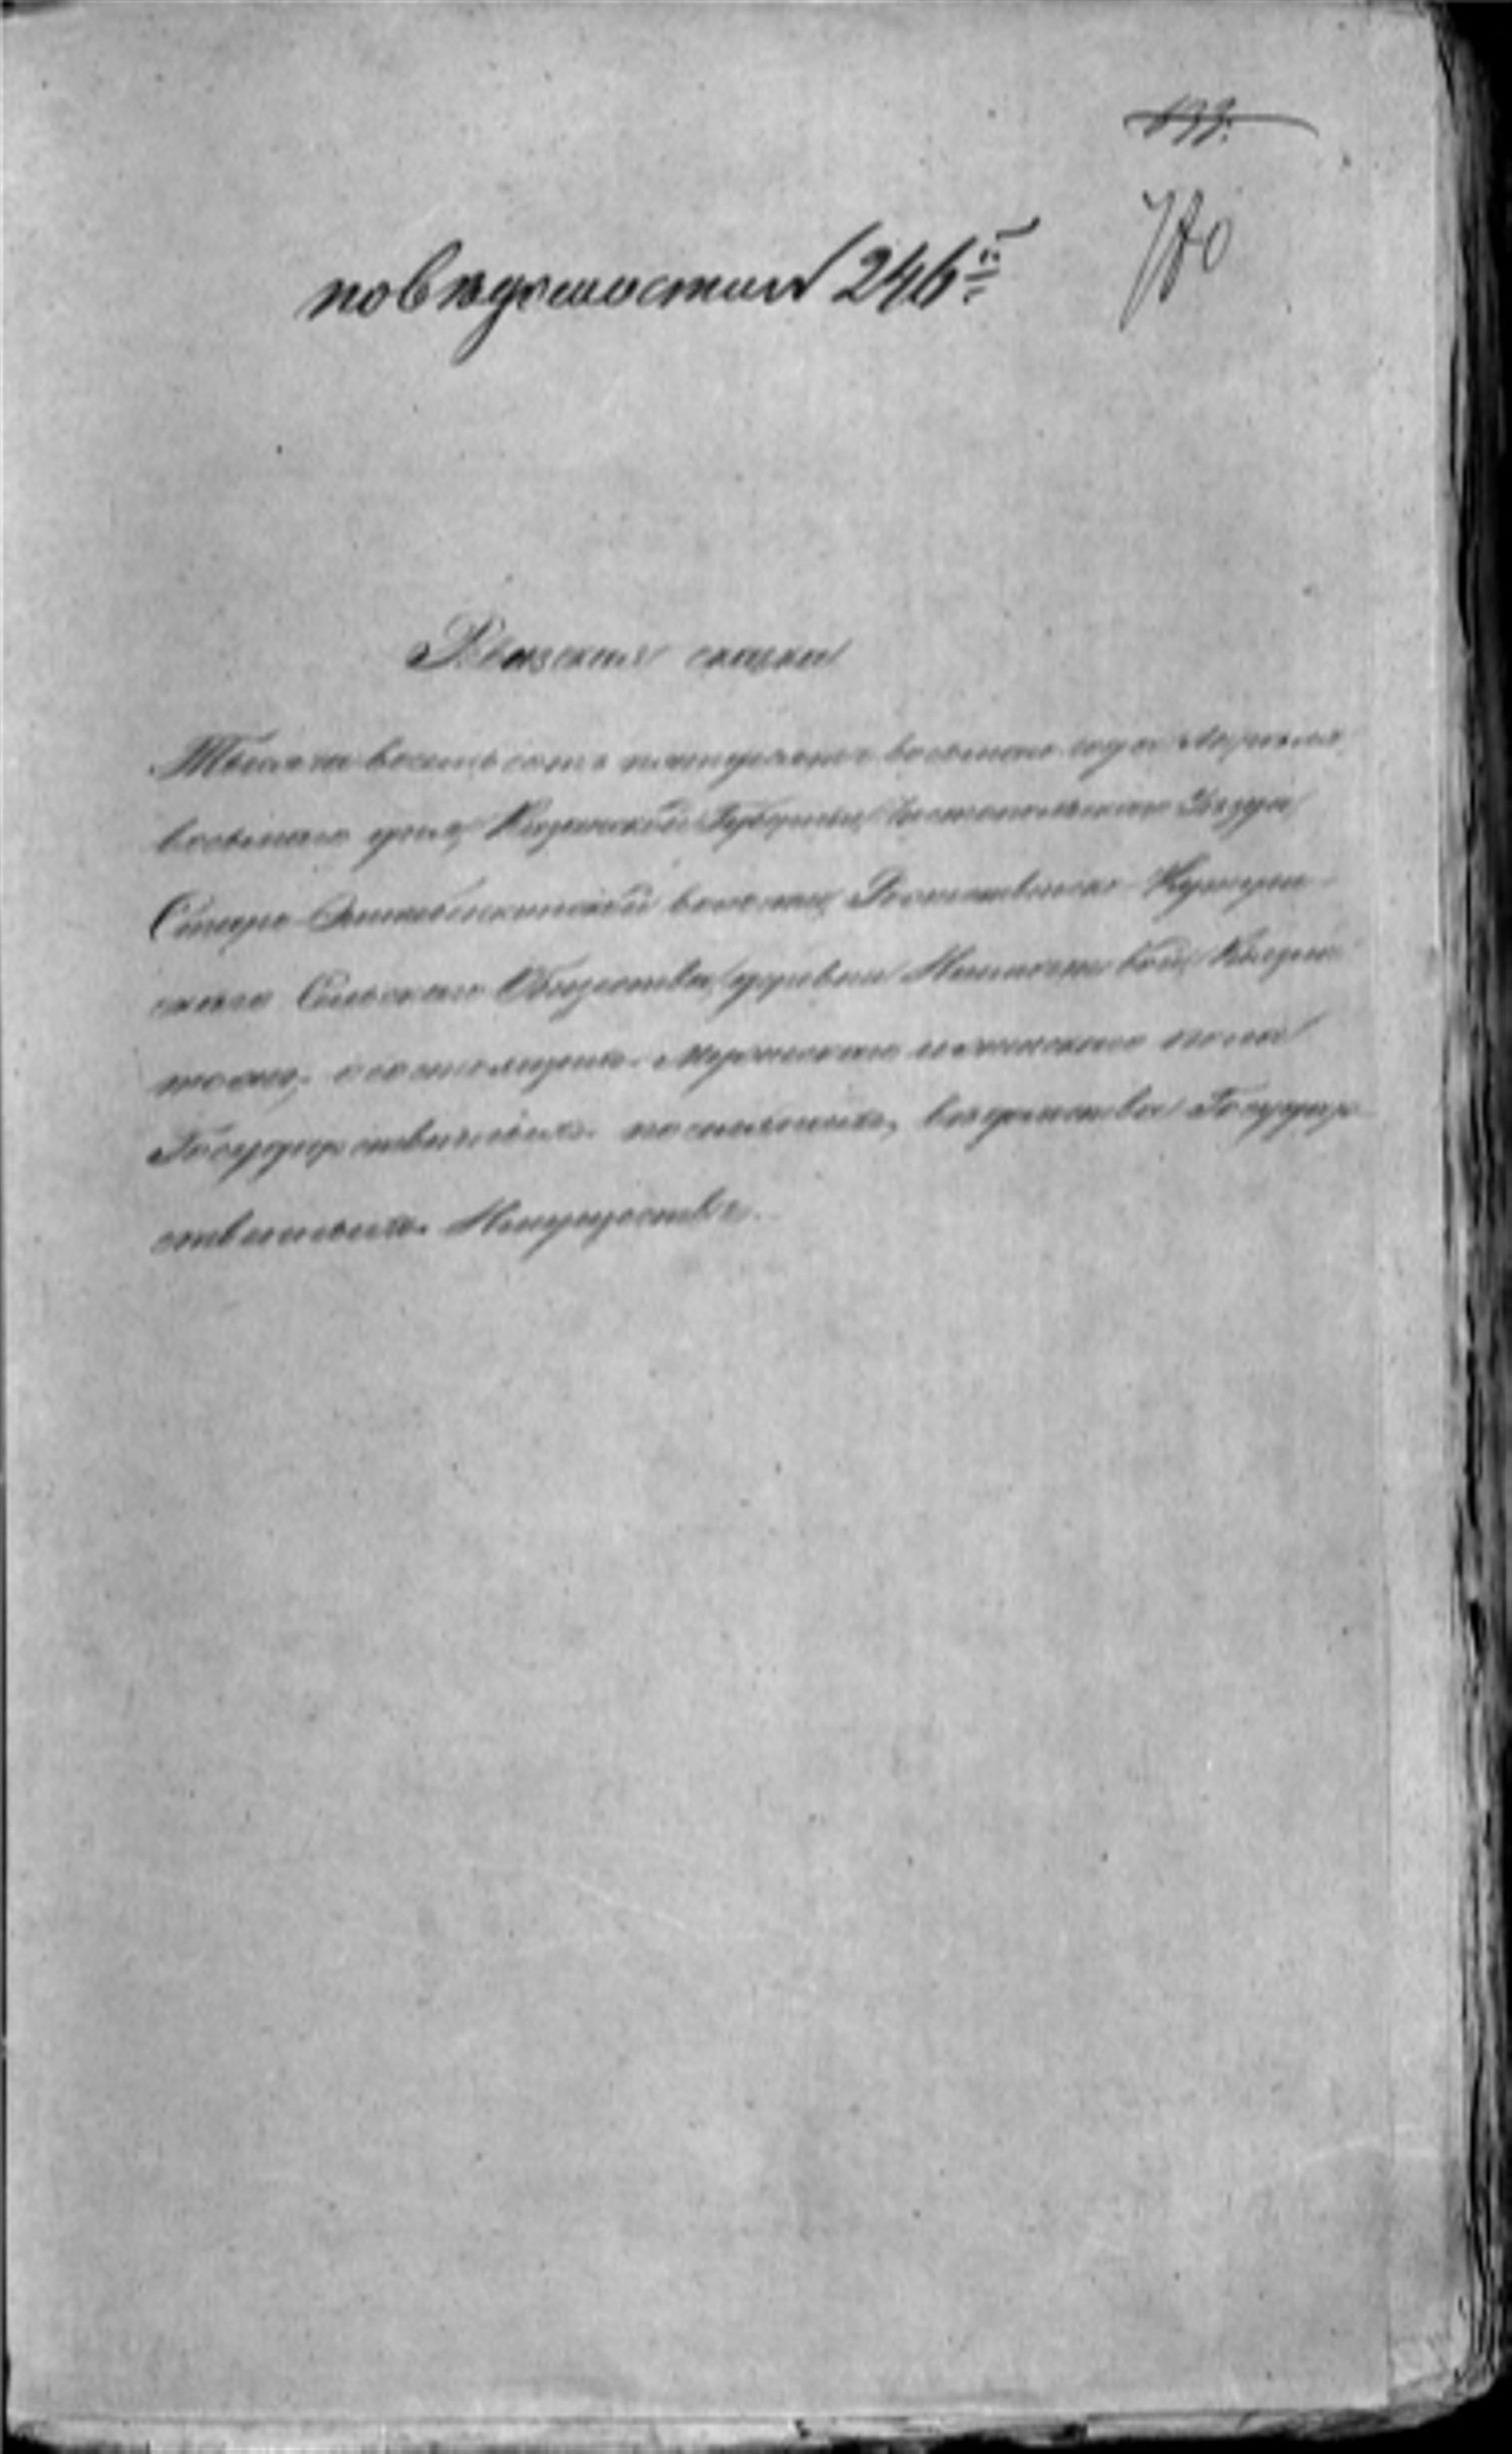 780
по ведомости 246й
Ревизская сказка
Тысяча восемь сотъ пятьдесятъ восьмаго года Апреля
восьмаго дня, Казанской Губернии Чистопольскаго Уезда
Старо- волости, Рожественско-
скаго Сельскаго Общества деревни
о состоящихъ Мужескаго и женскаго пола
Государственныхъ поселянахъ, ведомства Государ
ственныхъ Имуществъ.